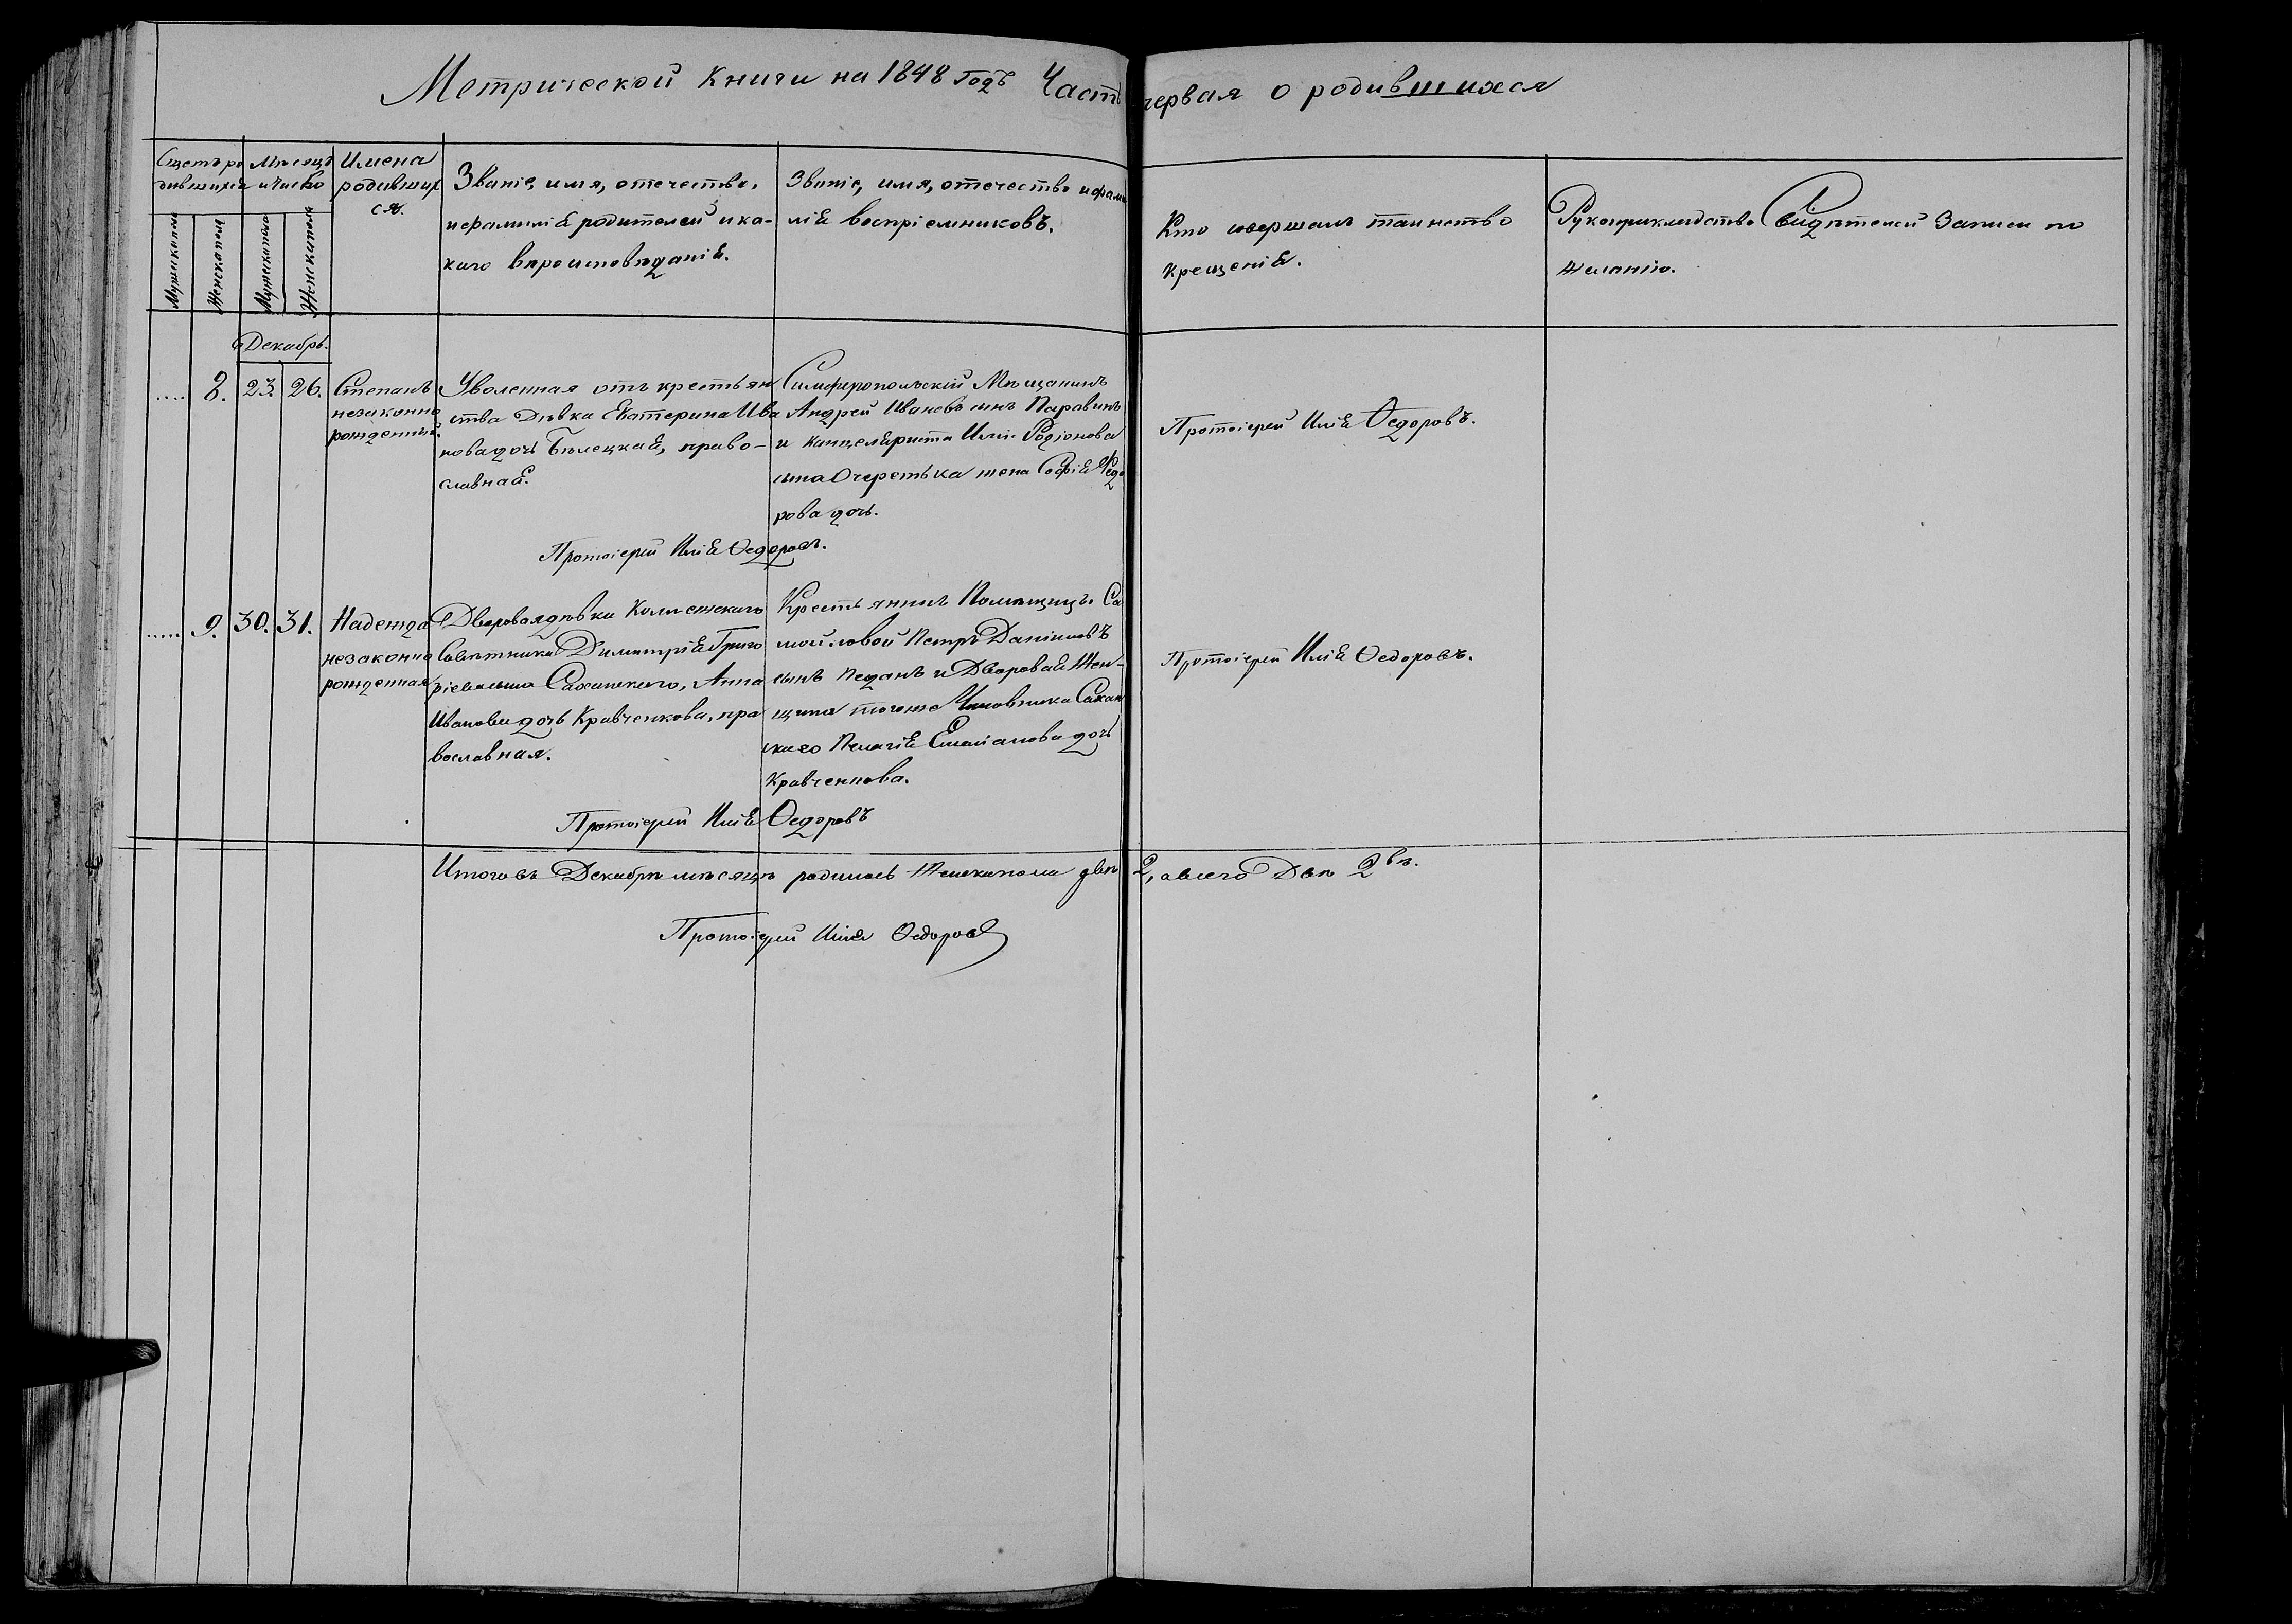 Метрической Книги на 1848 годъ Часть первая о родившихся
Щетъ ро
дившихся
Мѣсяцъ
и число
Имена
родивших
ся.
Званіе, имя, отечество,
и фамилія родителей и ка-
каго вѣроисповѣданія.
Званіе, имя, отечество и фами
лія воспріемниковъ.
Кто совершалъ таинство
крещенія.
Рукоприкладство свидѣтелей записи по
желанію.
Мужеска пола
Женска пола
Мужеска пола
Женска пола
Декабрь.
.... 8. 23. 26.
Степанъ
незаконно
рожденный.
Уволенная отъ крестьян
ства Дѣвка Екатерина Ива
нова дочь Бѣлецкая, право-
славная.
Симферопольскій Мѣщанинъ
Андрей Ивановъ сынъ Паравинъ
и канцеляриста Ильи Родіонова
сына Очеретька жена Софія Федо
рова дочь.
Протоіерей Илія Ѳедоровъ.
Протоіерей Илія Ѳедоровъ.
..... 9. 30. 31.
Надежда
незаконно
рожденная
Дворовая дѣвка Коллежскаго
Совѣтника Димитрія Григо
ріева сына Саханскаго, Анна
Иванова дочь Кравченкова, пра
вославная.
Крестьянинъ Помѣщицы Са
мойловой Петръ Даніиловъ
сынъ Педанъ и Дворовая Жен-
щина тогоже Чиновника Сахан
скаго Пелагія Емеліанова дочь
Кравченкова.
Протоіерей Илія Ѳедоровъ.
Протоіерей Илія Ѳедоровъ
Итого въ Декабрѣ мѣсяцѣ родилось Женска пола двѣ 2, а всего Двѣ 2вѣ.
Протоіерей Илія Ѳедоровъ